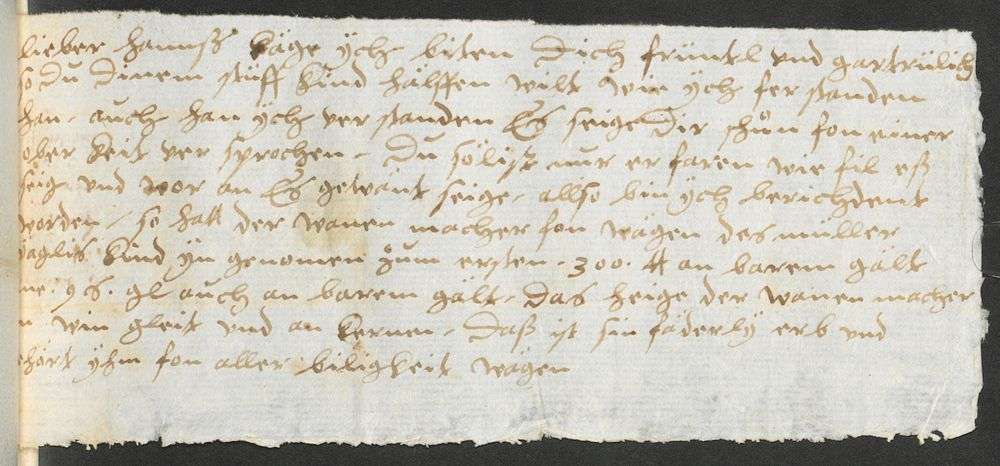 lieber hannß käge ych biten Dich früntl vnd gartrülich
so Du Dinem stüff kind hälffen wilt wie ych fer standen
han - auch han ych ver standen Es seige Dir schon fon einer
ober keit ver sprochen - Du sölist nur er faren wie fil eß
seig vnd wor an Es gewänt seige - allso bin ych berichdent
worden - so hatt der wanen macher fon wägen des müller
kind yn genomen zum ersten - 300 · ℔ an barem gält
gl auch an barem gält - Das heige der wanen macher
win gleit vnd an kernen - Daß ist sin fäderly erb vnd
hört yhm fon aller biligkeit wägen